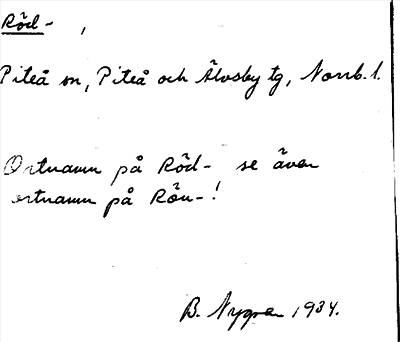 Röd- ,
Piteå sn, Piteå och Älvsby tg, Norrb. l.
Ortnamn på Röd- se även
ortnamn på Rön-!
B. Nygren 1934.